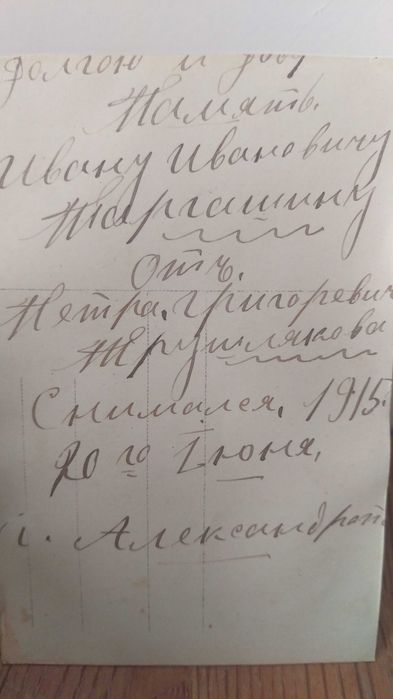 долгою и
Память.
Ивану Ивановичу
Таргашину
отъ.
Петра, Григоревич
Трушлякова
Снимался, 1915.
20 го Июня,
г. Александроп